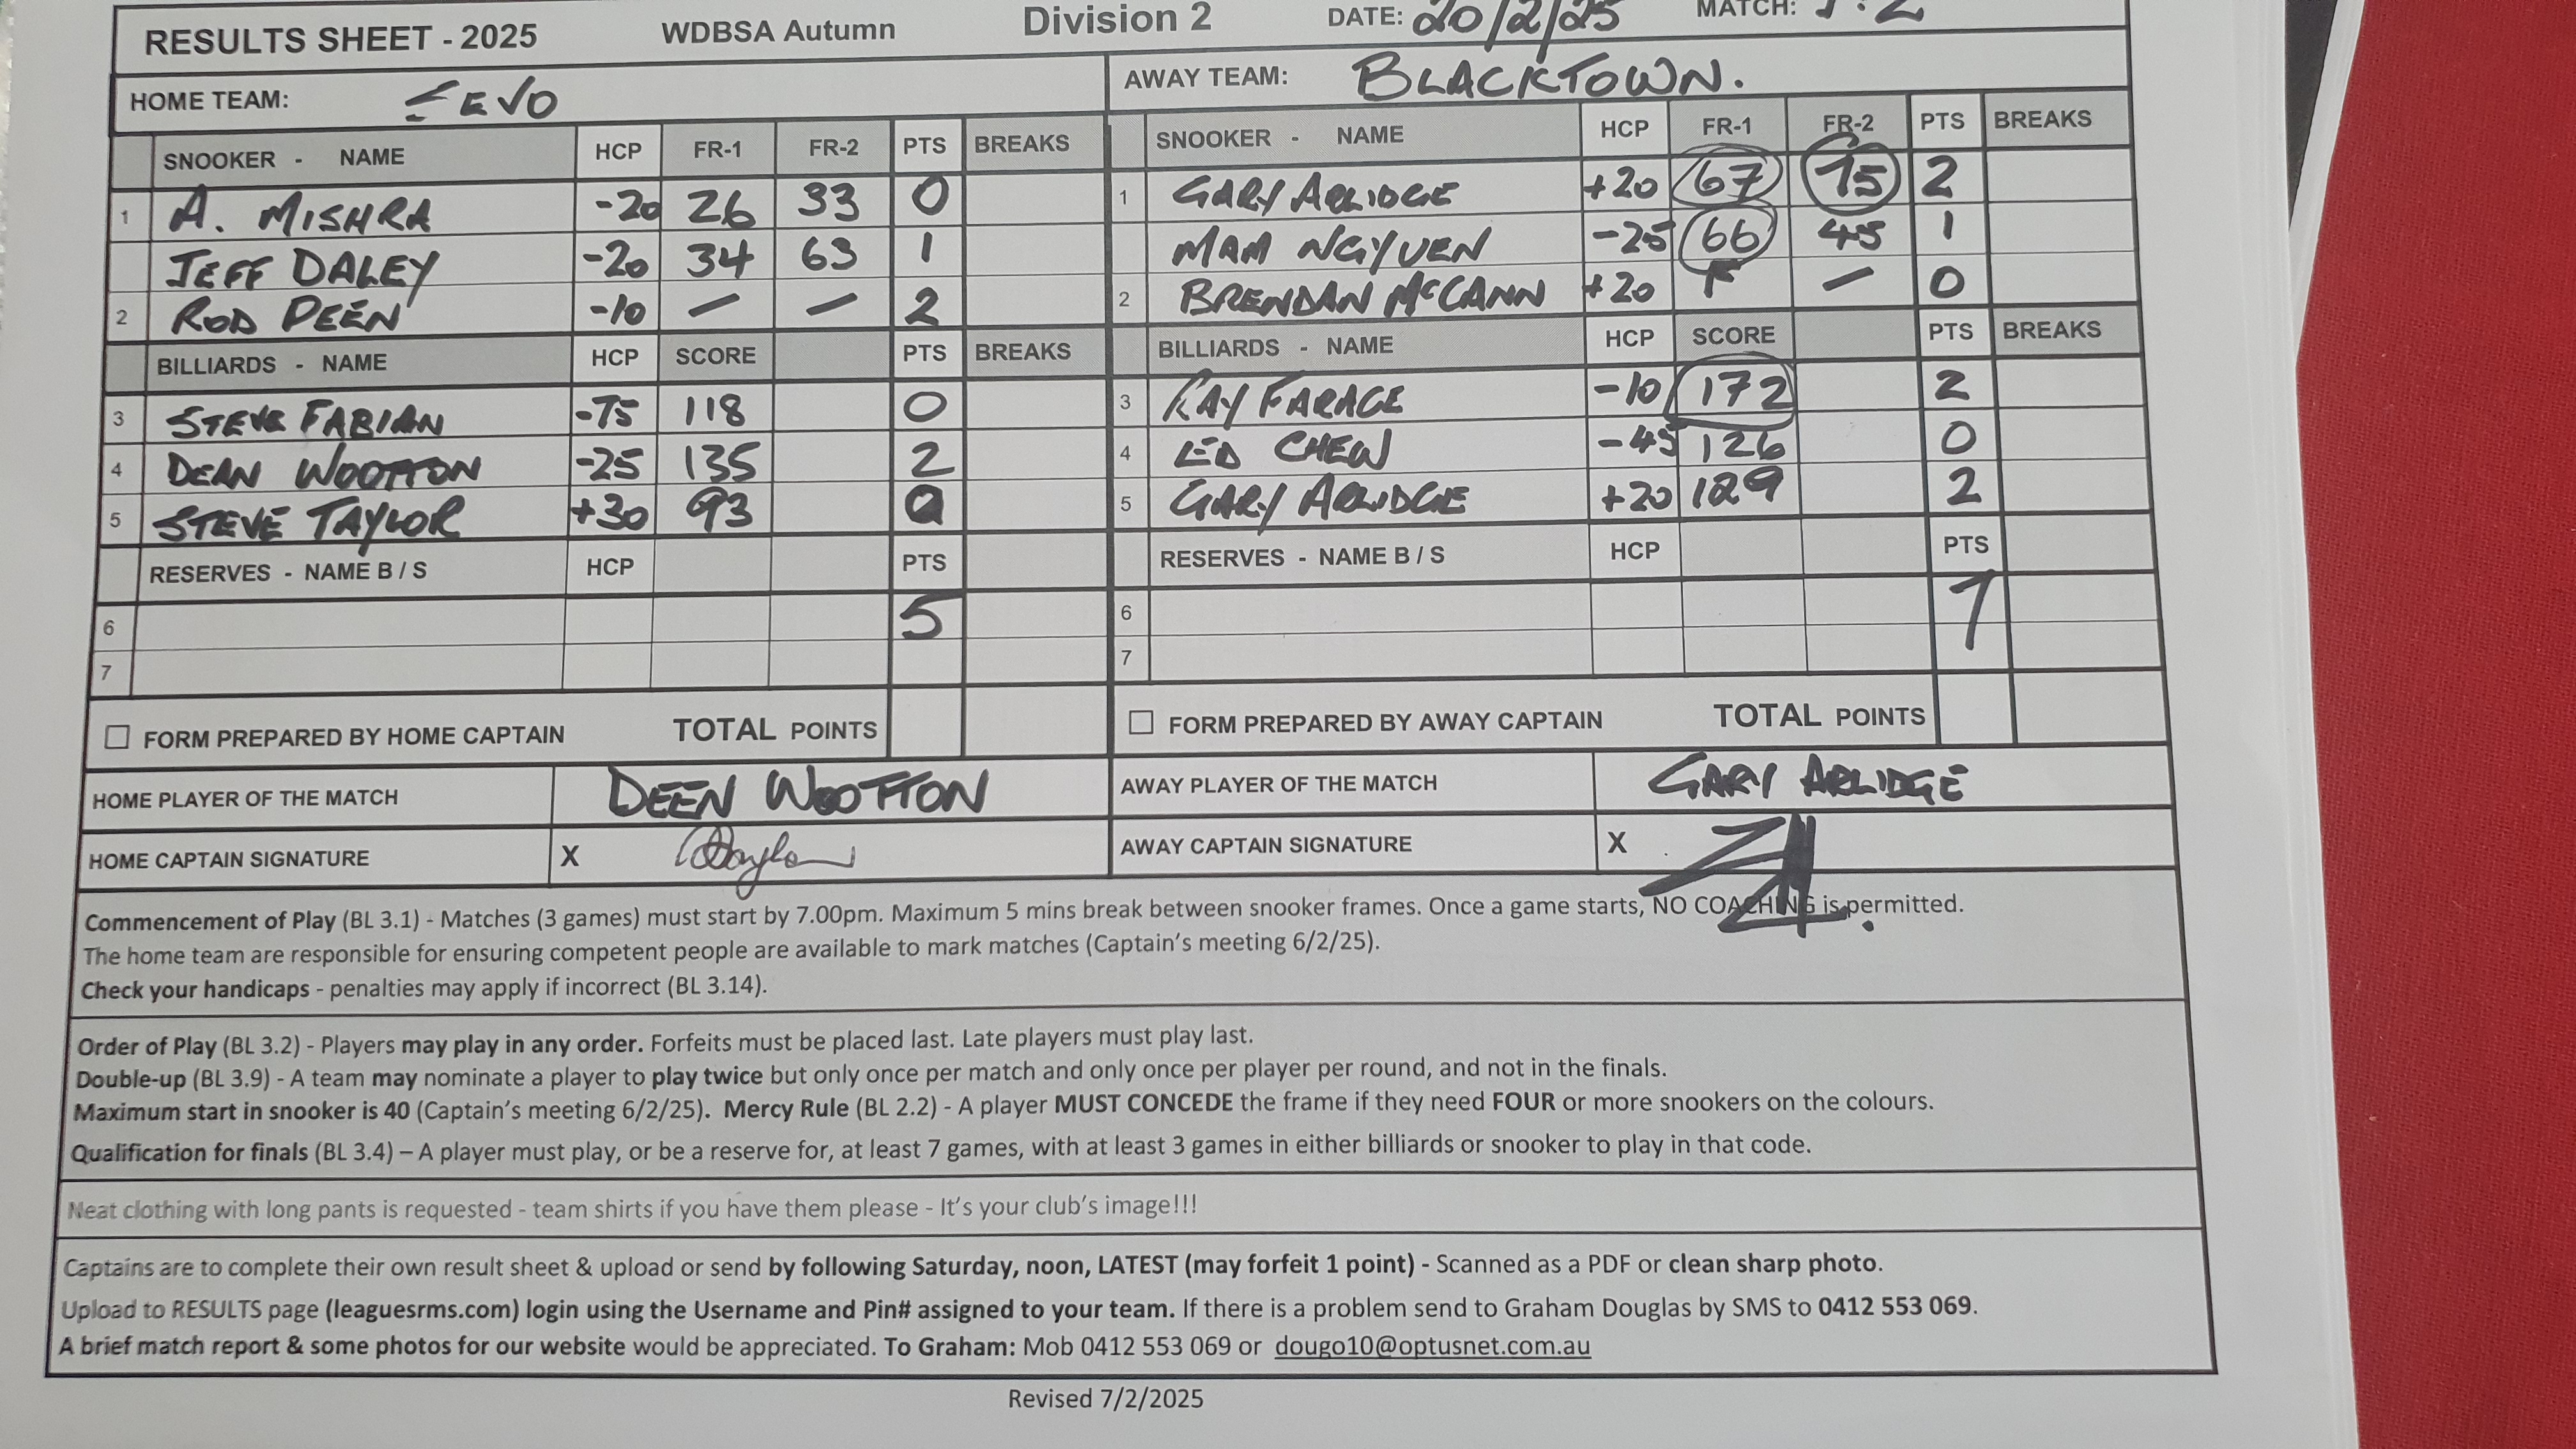 RESULTS SHEET - 2025 WDBSA Autumn Division 2 DATE: 20/2/25 MATCH:
HOME TEAM: EVO AWAY TEAM: BLACKTOWN.
SNOOKER - NAME HCP FR-1 FR-2 PTS BREAKS SNOOKER - NAME HCP FR-1 FR-2 PTS BREAKS
1 A. MISHRA -20 26 33 0 1 GARY ARLIDGE +20 67 75 2
JEFF DALEY -20 34 63 1 MAM NGYUEN -25 66 45 1
2 ROD DEEN -10 – – 2 2 BRENDAN McCANN +20 F – 0
BILLIARDS - NAME HCP SCORE PTS BREAKS BILLIARDS - NAME HCP SCORE PTS BREAKS
3 STEVE FABIAN -75 118 0 3 RAY FARAGE -10 172 2
4 DEAN WOOTTON -25 135 2 4 LED CHEW -45 126 0
5 STEVE TAYLOR +30 93 0 5 GARY ARLIDGE +20 129 2
RESERVES - NAME B / S HCP PTS RESERVES - NAME B / S HCP PTS
6 5 6 7
7 7
FORM PREPARED BY HOME CAPTAIN TOTAL POINTS FORM PREPARED BY AWAY CAPTAIN TOTAL POINTS
HOME PLAYER OF THE MATCH DEEN WOOTTON AWAY PLAYER OF THE MATCH GARY ARLIDGE
HOME CAPTAIN SIGNATURE X AWAY CAPTAIN SIGNATURE X
Commencement of Play (BL 3.1) - Matches (3 games) must start by 7.00pm. Maximum 5 mins break between snooker frames. Once a game starts, NO COACHING is permitted.
The home team are responsible for ensuring competent people are available to mark matches (Captain's meeting 6/2/25).
Check your handicaps - penalties may apply if incorrect (BL 3.14).
Order of Play (BL 3.2) - Players may play in any order. Forfeits must be placed last. Late players must play last.
Double-up (BL 3.9) - A team may nominate a player to play twice but only once per match and only once per player per round, and not in the finals.
Maximum start in snooker is 40 (Captain's meeting 6/2/25). Mercy Rule (BL 2.2) - A player MUST CONCEDE the frame if they need FOUR or more snookers on the colours.
Qualification for finals (BL 3.4) – A player must play, or be a reserve for, at least 7 games, with at least 3 games in either billiards or snooker to play in that code.
Neat clothing with long pants is requested - team shirts if you have them please - It's your club's image!!!
Captains are to complete their own result sheet & upload or send by following Saturday, noon, LATEST (may forfeit 1 point) - Scanned as a PDF or clean sharp photo.
Upload to RESULTS page (leaguesrms.com) login using the Username and Pin# assigned to your team. If there is a problem send to Graham Douglas by SMS to 0412 553 069.
A brief match report & some photos for our website would be appreciated. To Graham: Mob 0412 553 069 or dougo10@optusnet.com.au
Revised 7/2/2025